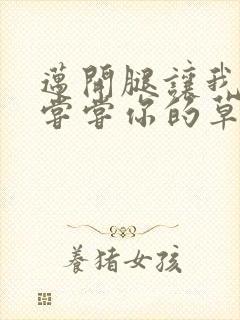 邁開腿讓我
嘗嘗你的草
養猪女孩